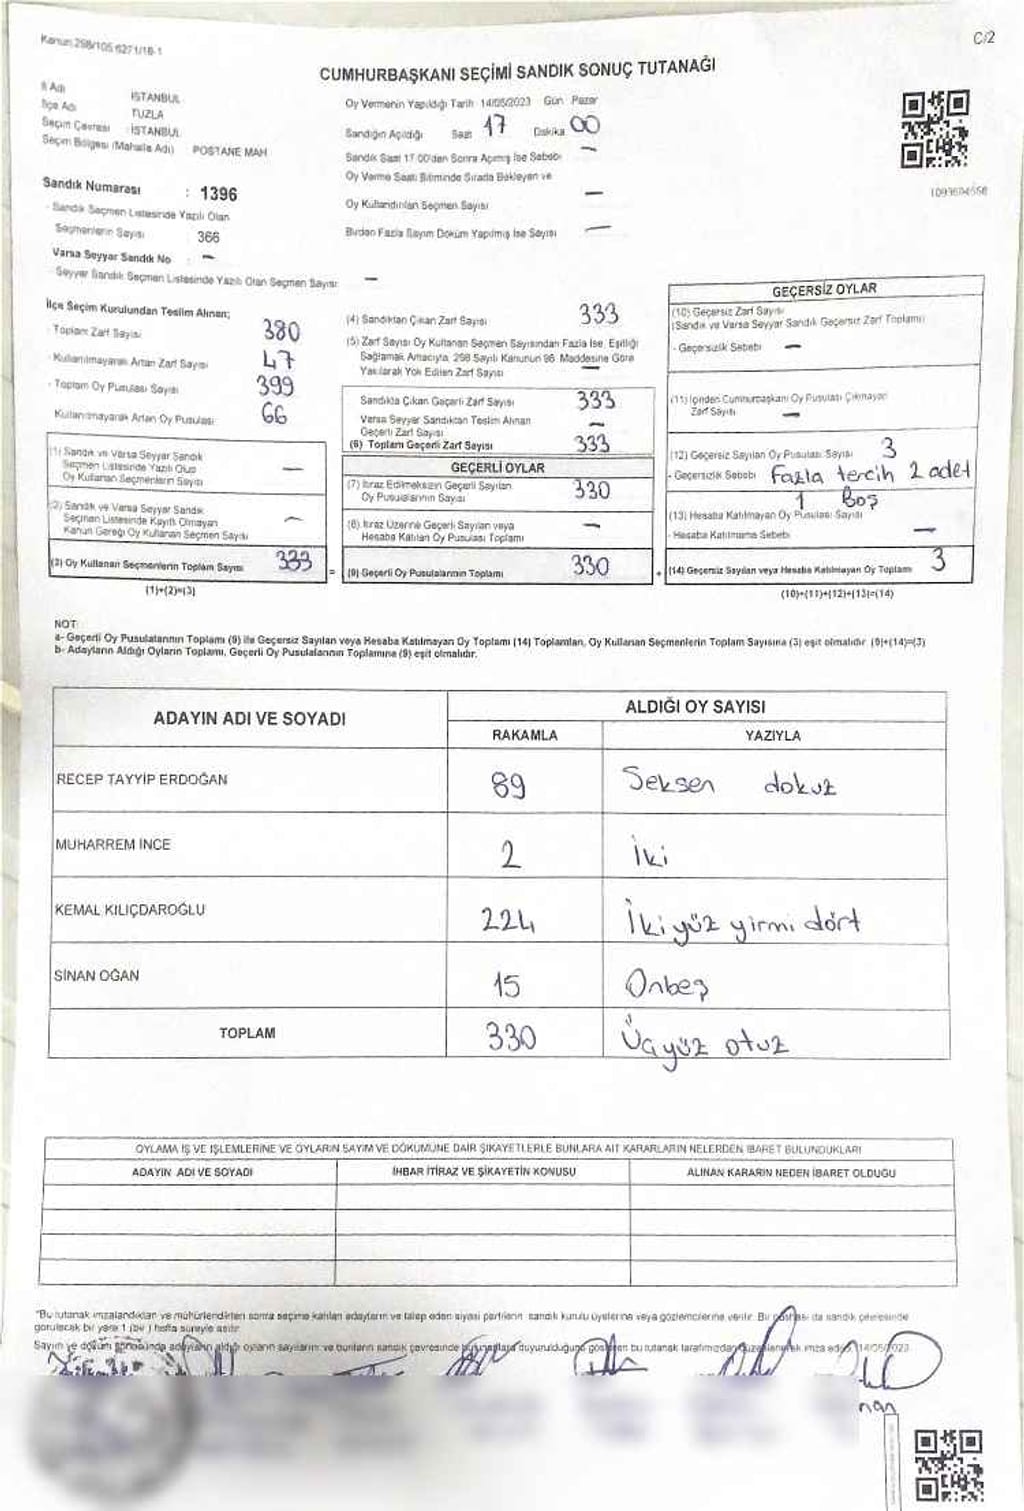 Kanun:298/105 6271/18-1
C/2
CUMHURBAŞKANI SEÇİMİ SANDIK SONUÇ TUTANAĞI
İl Adı İSTANBUL
İlçe Adı TUZLA
Seçim Çevresi : İSTANBUL
Seçim Bölgesi (Mahalle Adı) POSTANE MAH
Sandık Numarası : 1396
- Sandık Seçmen Listesinde Yazılı Olan
Seçmenlerin Sayısı 366
Varsa Seyyar Sandık No : —
- Seyyar Sandık Seçmen Listesinde Yazılı Olan Seçmen Sayısı —
Oy Vermenin Yapıldığı Tarih 14/05/2023 Gün Pazar
Sandığın Açıldığı Saat 17 Dakika 00
Sandık Saat 17:00'den Sonra Açılmış İse Sebebi —
Oy Verme Saati Bitiminde Sırada Bekleyen ve
Oy Kullandırılan Seçmen Sayısı —
Birden Fazla Sayım Döküm Yapılmış İse Sayısı —
İlçe Seçim Kurulundan Teslim Alınan;
- Toplam Zarf Sayısı 380
- Kullanılmayarak Artan Zarf Sayısı 47
- Toplam Oy Pusulası Sayısı 399
Kullanılmayarak Artan Oy Pusulası 66
(1) Sandık ve Varsa Seyyar Sandık
Seçmen Listesinde Yazılı Olup
Oy Kullanan Seçmenlerin Sayısı —
(2) Sandık ve Varsa Seyyar Sandık
Seçmen Listesinde Kayıtlı Olmayan
Kanun Gereği Oy Kullanan Seçmen Sayısı —
(3) Oy Kullanan Seçmenlerin Toplam Sayısı 333
(1)+(2)=(3)
=
(4) Sandıktan Çıkan Zarf Sayısı 333
(5) Zarf Sayısı Oy Kullanan Seçmen Sayısından Fazla İse, Eşitliği
Sağlamak Amacıyla, 298 Sayılı Kanunun 98. Maddesine Göre
Yakılarak Yok Edilen Zarf Sayısı —
Sandıkta Çıkan Geçerli Zarf Sayısı 333
Varsa Seyyar Sandıktan Teslim Alınan
Geçerli Zarf Sayısı —
(6) Toplam Geçerli Zarf Sayısı 333
GEÇERLİ OYLAR
(7) İtiraz Edilmeksizin Geçerli Sayılan
Oy Pusulalarının Sayısı 330
(8) İtiraz Üzerine Geçerli Sayılan veya
Hesaba Katılan Oy Pusulası Toplamı —
(9) Geçerli Oy Pusulalarının Toplamı 330
+
GEÇERSİZ OYLAR
(10) Geçersiz Zarf Sayısı
(Sandık ve Varsa Seyyar Sandık Geçersiz Zarf Toplamı)
- Geçersizlik Sebebi —
(11) İçinden Cumhurbaşkanı Oy Pusulası Çıkmayan
Zarf Sayısı —
(12) Geçersiz Sayılan Oy Pusulası Sayısı 3
- Geçersizlik Sebebi Fazla tercih 2 adet
1 Boş
(13) Hesaba Katılmayan Oy Pusulası Sayısı
- Hesaba Katılmama Sebebi —
(14) Geçersiz Sayılan veya Hesaba Katılmayan Oy Toplamı 3
(10)+(11)+(12)+(13)=(14)
NOT:
a- Geçerli Oy Pusulalarının Toplamı (9) ile Geçersiz Sayılan veya Hesaba Katılmayan Oy Toplamı (14) Toplamları, Oy Kullanan Seçmenlerin Toplam Sayısına (3) eşit olmalıdır (9)+(14)=(3)
b- Adayların Aldığı Oyların Toplamı, Geçerli Oy Pusulalarının Toplamına (9) eşit olmalıdır.
ADAYIN ADI VE SOYADI ALDIĞI OY SAYISI
RAKAMLA YAZIYLA
RECEP TAYYİP ERDOĞAN 89 Seksen dokuz
MUHARREM İNCE 2 İki
KEMAL KILIÇDAROĞLU 224 İkiyüz yirmi dört
SİNAN OĞAN 15 Onbeş
TOPLAM 330 Üçyüz otuz
OYLAMA İŞ VE İŞLEMLERİNE VE OYLARIN SAYIM VE DÖKÜMÜNE DAİR ŞİKAYETLERLE BUNLARA AİT KARARLARIN NELERDEN İBARET BULUNDUKLARI
ADAYIN ADI VE SOYADI İHBAR İTİRAZ VE ŞİKAYETİN KONUSU ALINAN KARARIN NEDEN İBARET OLDUĞU
"Bu tutanak imzalandıktan ve mühürlendikten sonra seçime katılan adayların ve talep eden siyasi partilerin sandık kurulu üyelerine veya gözlemcilerine verilir. Bir da sandık çevresinde
görülecek bir yere 1 (bir) hafta süreyle asılır
Sayım ve döküm sonucunda adayların aldığı oyların sayılarını ve bunların sandık çevresinde duyurulduğunu gösteren bu tutanak tarafımızdan düzenlenerek imza edildi. 14/05/2023